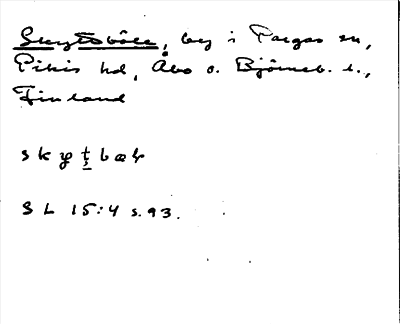 Skyttböle, by i Pargas sn,
Pikis hd, Åbo o. Björneb. l.,
Finland
s k y t b
S L 15:4 s. 93.